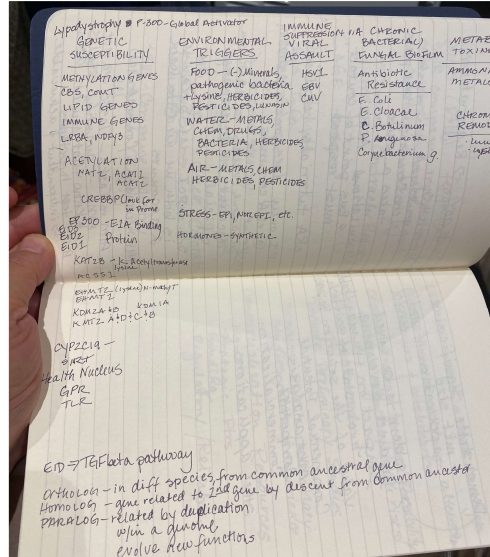 Lypodystrophy P-300-Global Activator
GENETIC
SUSCEPTIBILITY
METHYLATION GENES
CBS, COMT
LIPID GENES
IMMUNE GENES
LRBA, NDAF3
ACETYLATION
NAT2, ACAT1
ACAT2
CREBBP (look for
in Prome
EP300 - E1A Binding
EID3
EID2 Protein
EID1
KAT2B - K. Acetyltransferase
lysine
ACSS1
EHMT2 (lysine) N-methylT
EHMT1
KDM2A+B KDM1A
KMT2 A+D+C+B
CYP2C19 -
Health Nucleus
GPR
TLR
ENVIRONMENTAL
TRIGGERS
FOOD - (-) Minerals,
pathogenic bacteria
+lysine, HERBICIDES,
PESTICIDES, LUNASIN
WATER - METALS,
CHEM, DRUGS,
BACTERIA, HERBICIDES
PESTICIDES
AIR - METALS, CHEM
HERBICIDES, PESTICIDES
STRESS - EPI, NOREPI, etc.
HORMONES - SYNTHETIC
IMMUNE
SUPPRESSION VIA
VIRAL
ASSAULT
HSV1
EBV
CMV
A CHRONIC
BACTERIAL)
FUNGAL BIOFILM
Antibiotic
Resistance
E. Coli
E. Cloacal
C. Botulinum
P. Aerugenosa
Corynebacterium g.
METAB
TOXIN
AMMONI
METAL
CHROM
REMOD
EID => TGFbeta pathway
ORTHOLOG - in diff species, from common ancestral gene
HOMOLOG - gene related to 2nd gene by descent from common ancestor
PARALOG - related by duplication
w/in a genome
evolve new functions